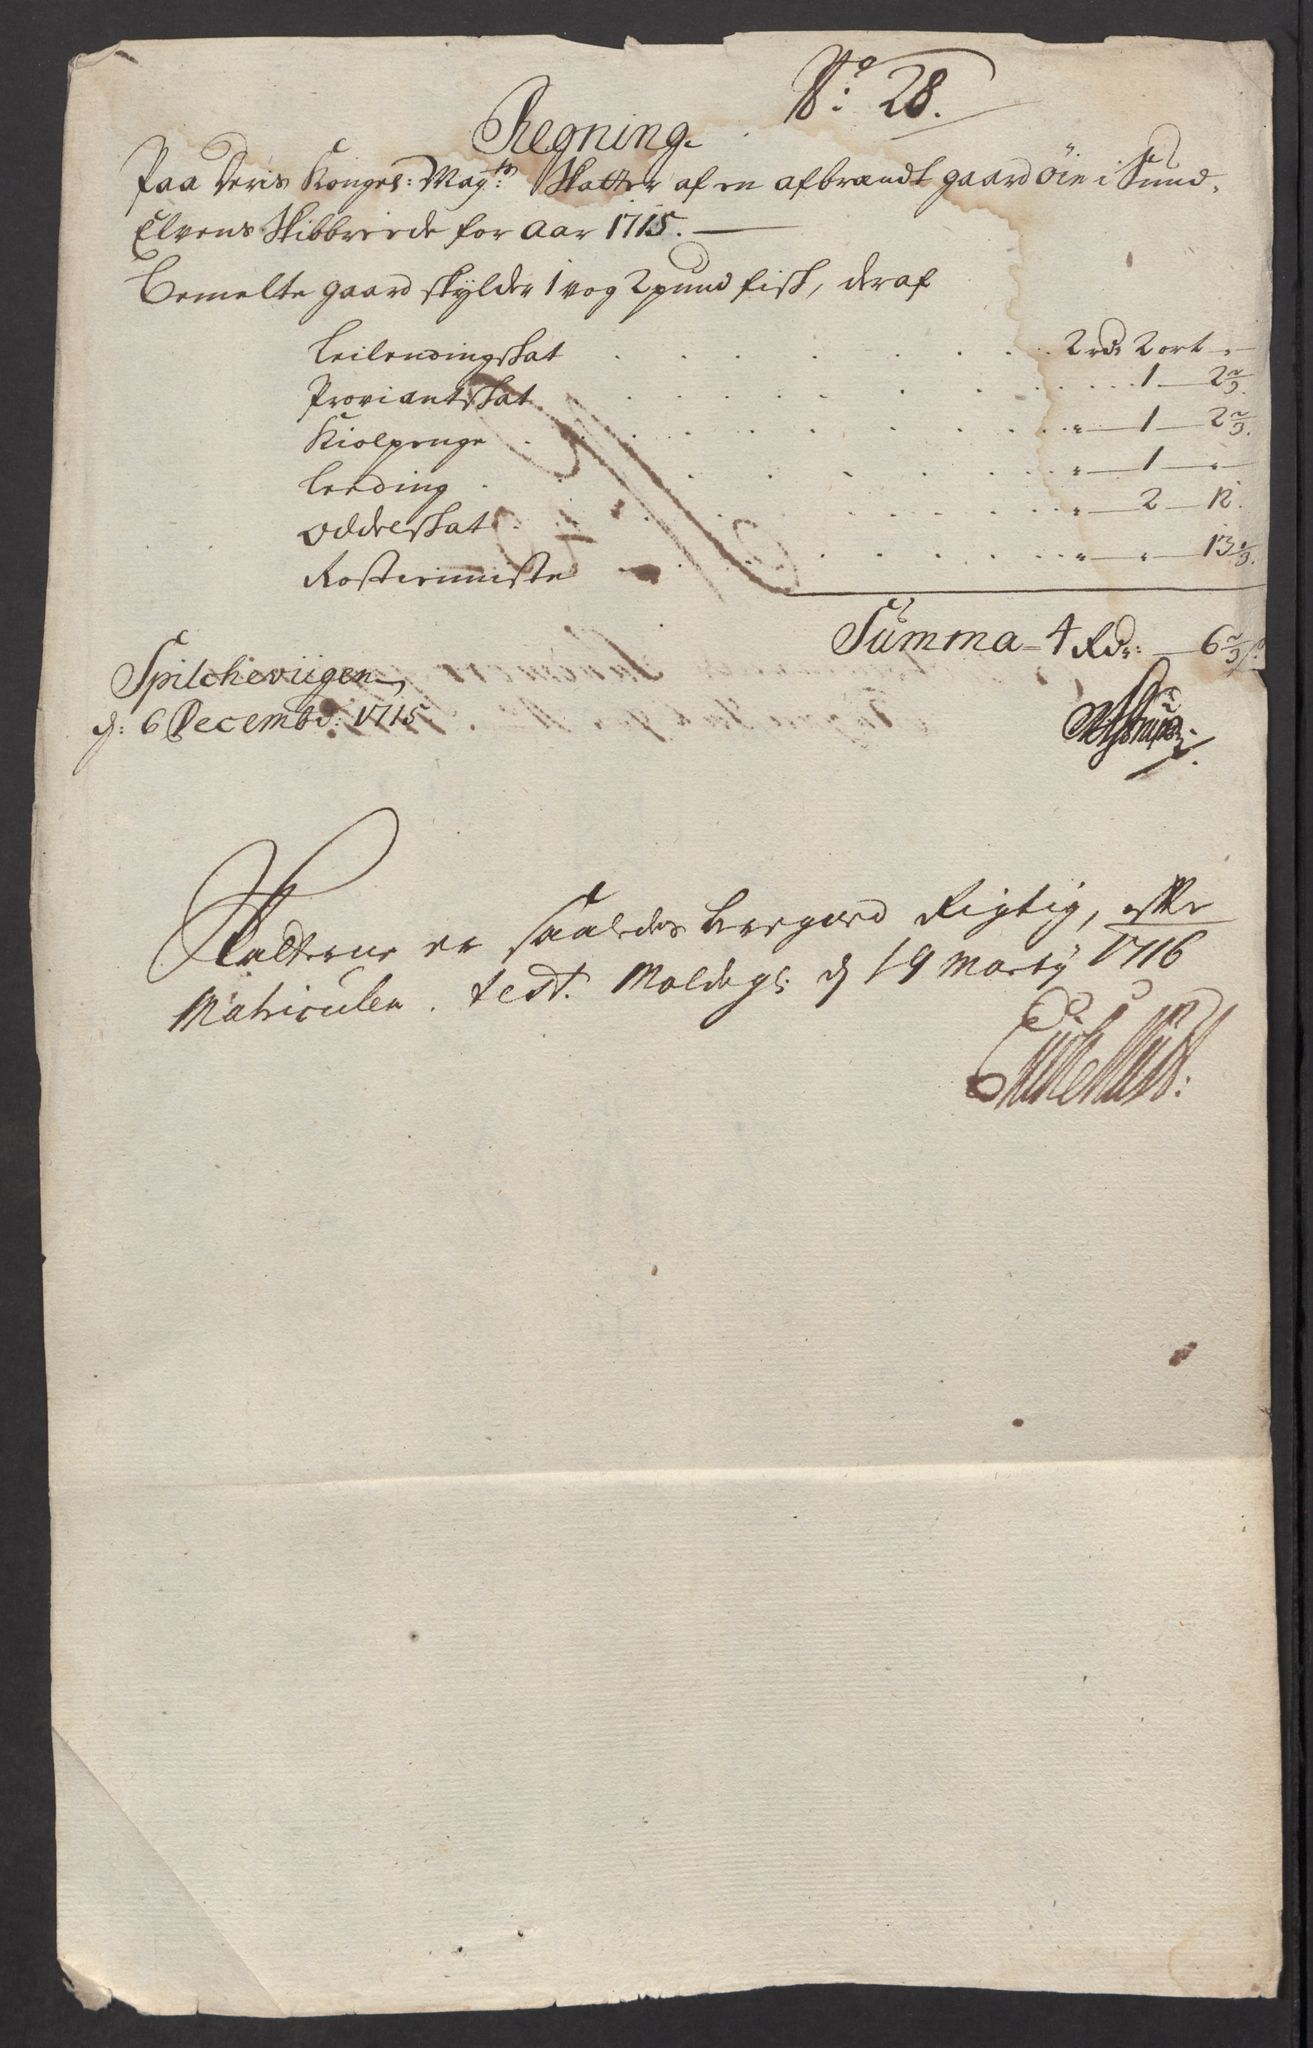 No: 28.
Regning
Paa Deris Kongel: Mayts: Skatter af en afbrændt gaard Öie i Sund,
Elvens Skibbreede for Aar 1715.
Bemelte gaard skylder 1 vog 2 pund fisk, deraf
Leilendingskat . . . 2 rdr 2 ort -
Proviantskat . . . 1 - 2 2/3.
Kiolpenge . . . " - 1 - 2 2/3.
Leeding . . . " - 1 - "
Oddelskat . . . " - 2 - 12.
Rostieniste . . . " - " - 13 1/3.
Summa - 4 Rdr: - 6 2/3 s
Spilcheviigen
d: 6 Decembr: 1715
Skatterne er saaledes beregned Rigtig, efter
Matriculen. test. Moldegd: d 19 Marty 1716